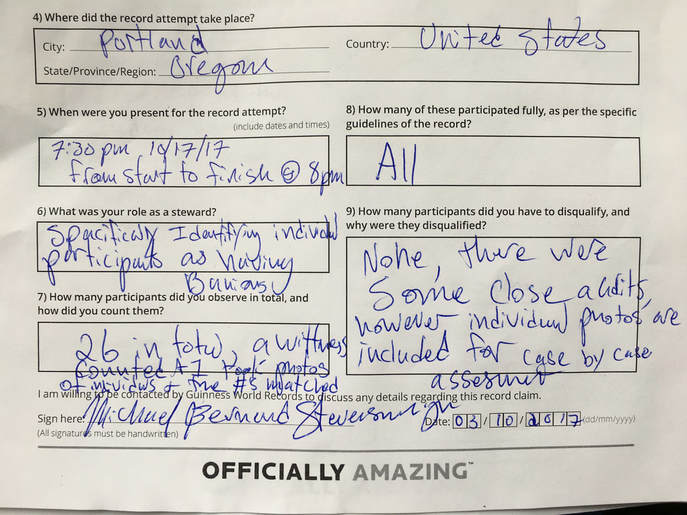 4) Where did the record attempt take place?
City: Portland Country: United States
State/Province/Region: Oregon
5) When were you present for the record attempt?
(include dates and times)
7:30 pm 10/17/17
from start to finish @ 8pm
8) How many of these participated fully, as per the specific
guidelines of the record?
All
6) What was your role as a steward?
Specifically Identifying individual
participants as having
Bunions
9) How many participants did you have to disqualify, and
why were they disqualified?
None, there were
Some Close audits,
however individual photos are
included for case by case
7) How many participants did you observe in total, and
how did you count them?
26 in total, a wittness
counted & I took photos
of individuals + the #s matched
I am willing to be contacted by Guinness World Records to discuss any details regarding this record claim.
Sign here: Michael Bernard Date: 03/10/2017 (dd/mm/yyyy)
(All signatures must be handwritten)
OFFICIALLY AMAZING™